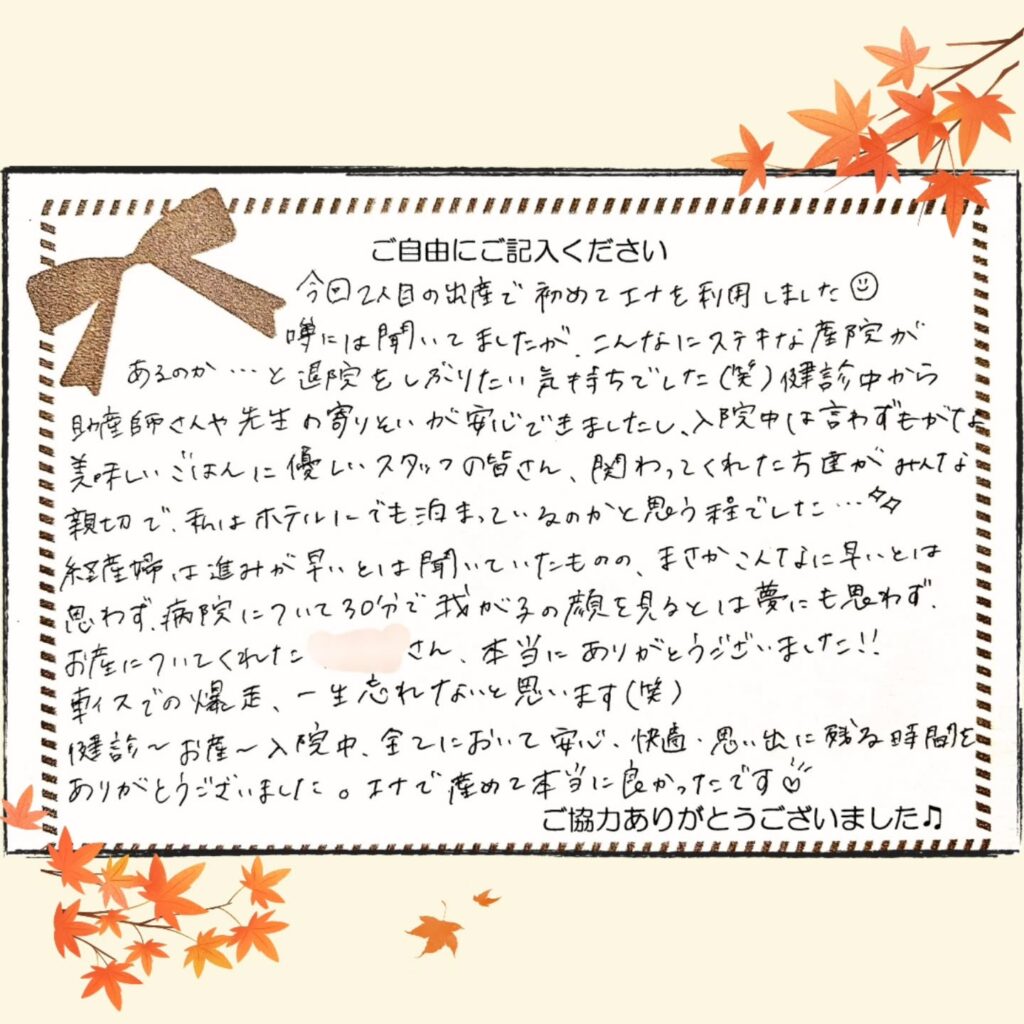 ご自由にご記入ください
今回2人目の出産で初めてエナを利用しました☺
噂には聞いてましたが、こんなにステキな産院が
あるのか…と退院をしぶりたい気持ちでした(笑)健診中から
助産師さんや先生の寄りそいが安心できましたし、入院中は言わずもがな
美味しいごはんに優しいスタッフの皆さん、関わってくれた方達がみんな
親切で、私はホテルにでも泊まっているのかと思う程でした…
経産婦は進みが早いとは聞いていたものの、まさかこんなに早いとは
思わず、病院について30分で我が子の顔を見るとは夢にも思わず、
お産についてくれた さん、本当にありがとうございました!!
車イスでの爆走、一生忘れないと思います(笑)
健診~お産~入院中、全てにおいて安心・快適・思い出に残る時間を
ありがとうございました。エナで産めて本当に良かったです♡
ご協力ありがとうございました♫